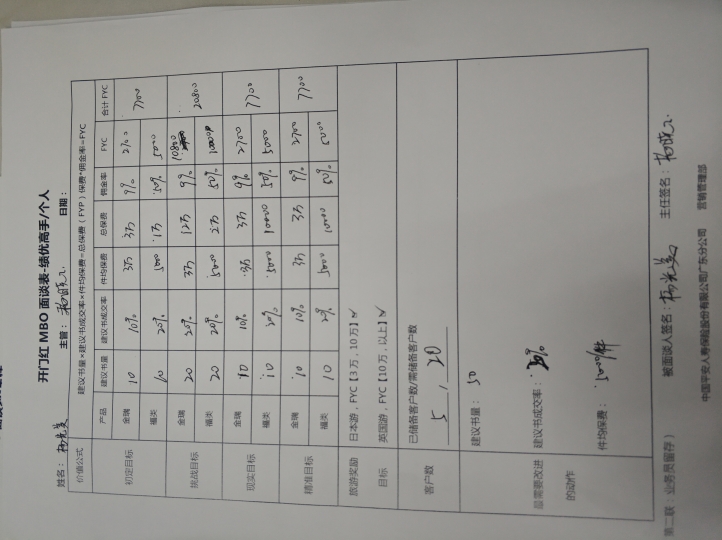 开门红 MBO 面谈表-绩优高手/个人
姓名： 主管： 日期：
价值公式 建议书量×建议书成交率×件均保费=总保费（FYP）保费*佣金率=FYC
产品 建议书量 建议书成交率 件均保费 总保费 佣金率 FYC 合计 FYC
初定目标 金瑞 10 10% 3万 3万 9% 2700 7700
福类 10 20% 5000 1万 50% 5000
挑战目标 金瑞 20 20% 3万 12万 9% 10800 20800
福类 20 20% 5000 2万 50% 10000
现实目标 金瑞 10 10% 3万 3万 9% 2700 7700
福类 10 20% 5000 10000 50% 5000
精准目标 金瑞 10 10% 3万 3万 9% 2700 7700
福类 10 20% 5000 10000 50% 5000
旅游奖励 日本游，FYC【3万，10万】
目标 英国游，FYC【10万，以上】
客户数 已储备客户数/需储备客户数
5，20
建议书量： 50
最需要改进 建议书成交率： 20%
的动作 件均保费： 5000/件
第二联：业务员留存） 被面谈人签名： 主任签名：
中国平安人寿保险股份有限公司广东分公司 营销管理部